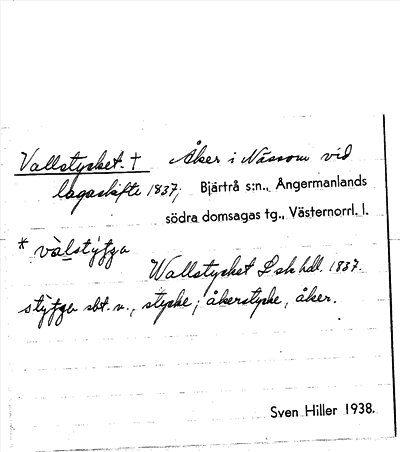 Vallstycket. † Åker i Nässom vid
lagaskifte 1837, Bjärtrå s:n., Ångermanlands
södra domsagas tg., Västernorrl. l.
* vàlstýʃʒa
Wallstycket Lsk hdl. 1837.
stýʃʒa sbt. n., stycke; åkerstycke, åker.
Sven Hiller 1938.